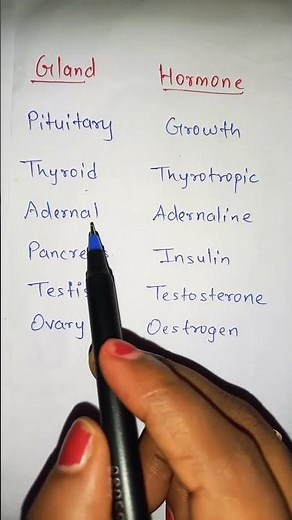 Gland Hormone
Pituitary Growth
Thyroid Thyrotropic
Adernal Adernaline
Pancre Insulin
Testis Testosterone
Ovary Oestrogen